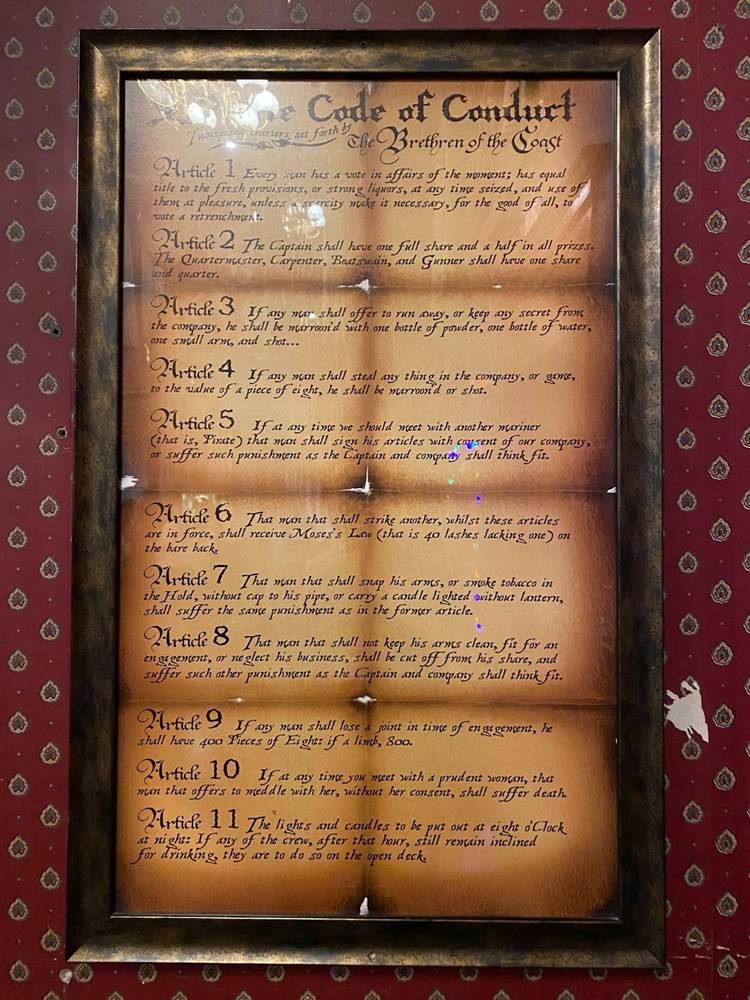 Code of Conduct
Transposed charters set forth by The Brethren of the Coast
Article 1 Every man has a vote in affairs of the moment; has equal
title to the fresh provisions, or strong liquors, at any time seized, and use of
them at pleasure, unless a scarcity make it necessary, for the good of all, to
vote a retrenchment.
Article 2 The Captain shall have one full share and a half in all prizes.
The Quartermaster, Carpenter, Boatswain, and Gunner shall have one share
and quarter.
Article 3 If any man shall offer to run away, or keep any secret from
the company, he shall be marroon'd with one bottle of powder, one bottle of water,
one small arm, and shot...
Article 4 If any man shall steal any thing in the company, or game,
to the value of a piece of eight, he shall be marroon'd or shot.
Article 5 If at any time we should meet with another mariner
(that is, Pirate) that man shall sign his articles with consent of our company,
or suffer such punishment as the Captain and company shall think fit.
Article 6 That man that shall strike another, whilst these articles
are in force, shall receive Moses's Law (that is 40 lashes lacking one) on
the bare back.
Article 7 That man that shall snap his arms, or smoke tobacco in
the Hold, without cap to his pipe, or carry a candle lighted without lantern,
shall suffer the same punishment as in the former article.
Article 8 That man that shall not keep his arms clean, fit for an
engagement, or neglect his business, shall be cut off from his share, and
suffer such other punishment as the Captain and company shall think fit.
Article 9 If any man shall lose a joint in time of engagement, he
shall have 400 Pieces of Eight: if a limb, 800.
Article 10 If at any time you meet with a prudent woman, that
man that offers to meddle with her, without her consent, shall suffer death.
Article 11 The lights and candles to be put out at eight o'Clock
at night: If any of the crew, after that hour, still remain inclined
for drinking, they are to do so on the open deck.